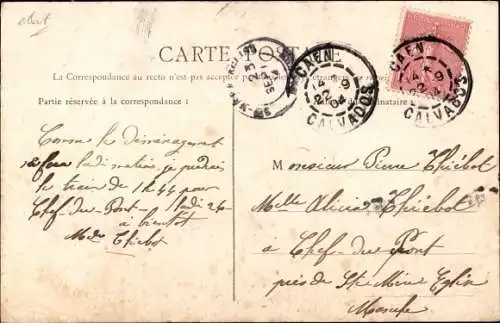 CARTE POSTALE
La Correspondance au recto n'est pas acceptée
Partie réservée à la correspondance :
CAEN
CALVADOS
CAEN
CALVADOS
Comme le déménagement
lundi matin, je prendrai
le train de 1h44 pour
Chef-du-Pont - lundi 24
à bientôt
Mde Thiébot
Monsieur Pierre Thiébot
Melle Thiébot
à Chef-du-Pont
près de Ste Mère Eglise
Manche